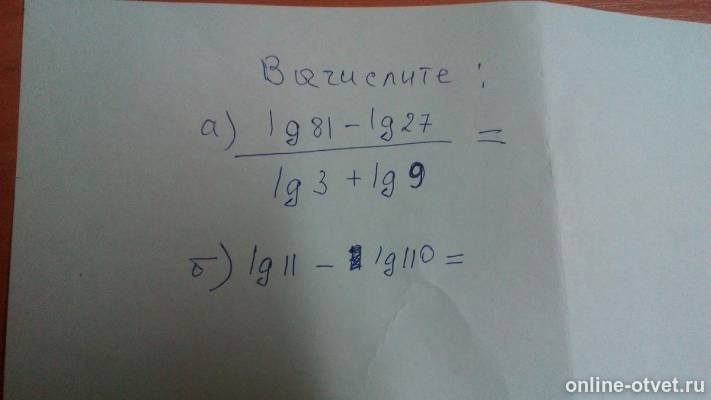 Вычислите:
а) lg 81 - lg 27 =
lg 3 + lg 9
б) lg 11 - lg 110 =
online-otvet.ru